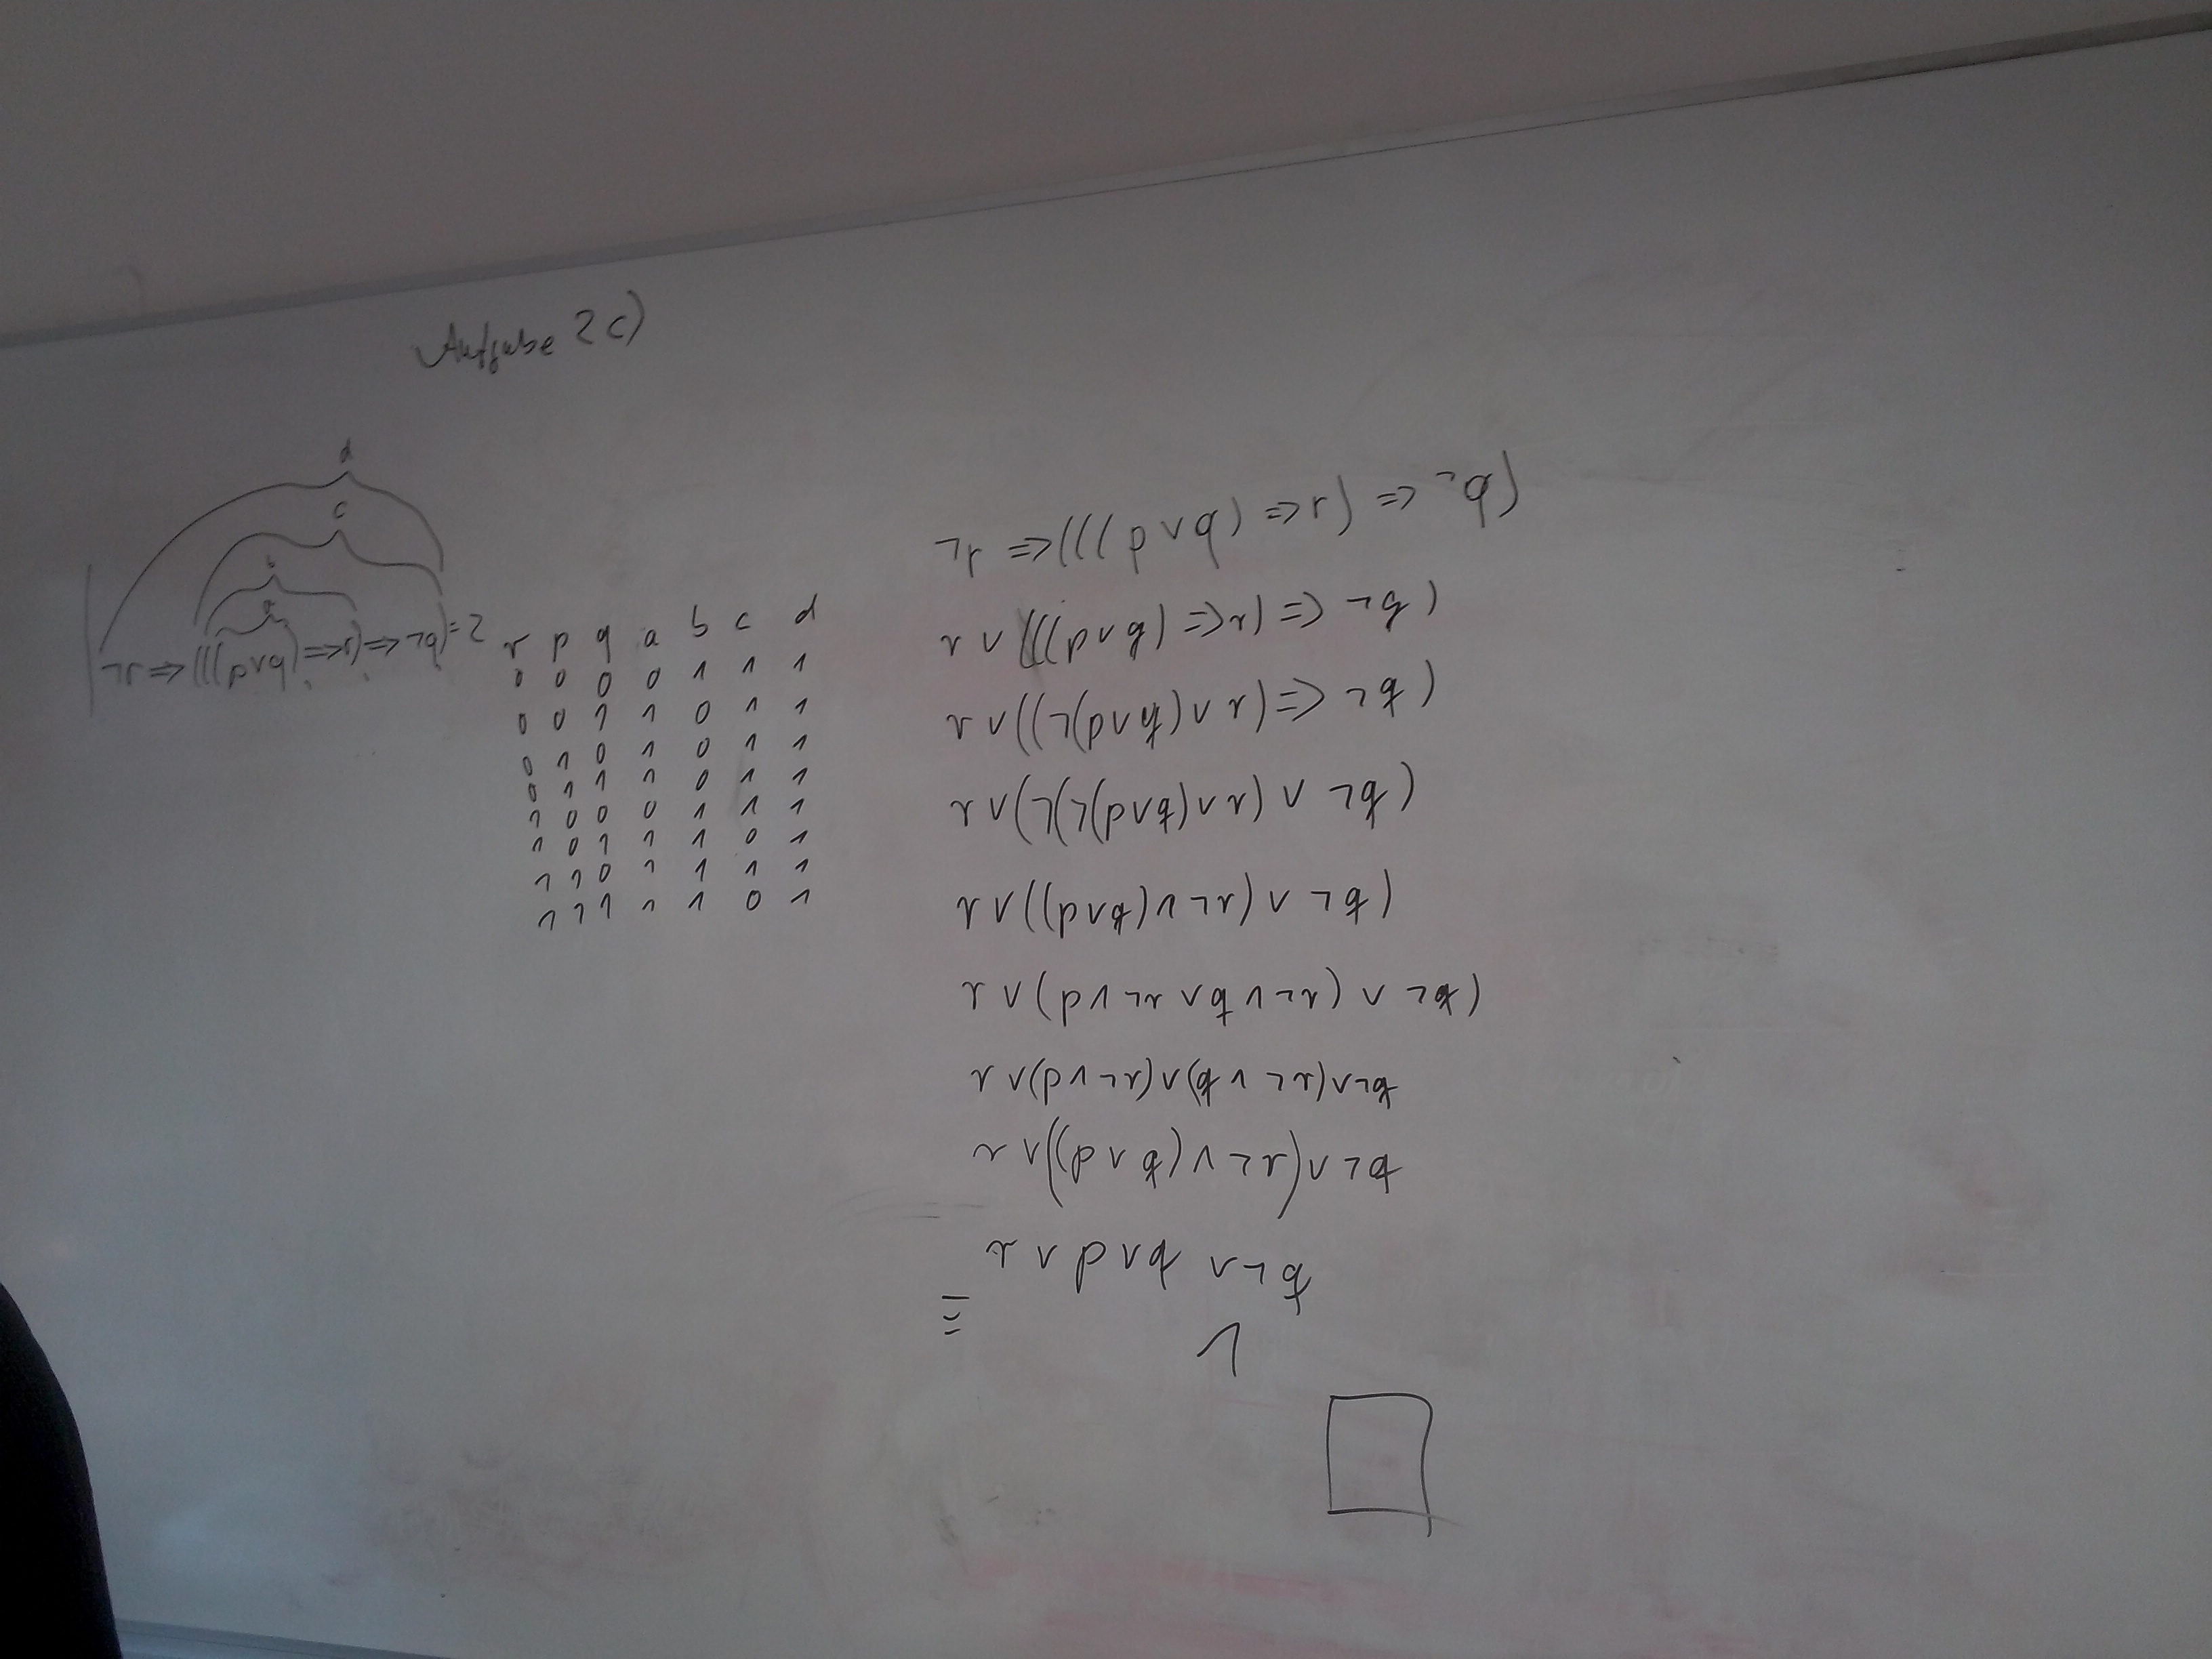 Aufgabe 2c)
d
c
b
a
¬r => (((p∨q) => r) => ¬q) = 2
r p q a b c d
0 0 0 0 1 1 1
0 0 1 1 0 1 1
0 1 0 1 0 1 1
0 1 1 1 0 1 1
1 0 0 0 1 1 1
1 0 1 1 1 0 1
1 1 0 1 1 1 1
1 1 1 1 1 0 1
¬r => (((p ∨ q) => r) => ¬q)
r ∨ (((p ∨ q) => r) => ¬q)
r ∨ ((¬(p ∨ q) ∨ r) => ¬q)
r ∨ (¬(¬(p ∨ q) ∨ r) ∨ ¬q)
r ∨ ((p ∨ q) ∧ ¬r) ∨ ¬q)
r ∨ (p ∧ ¬r ∨ q ∧ ¬r) ∨ ¬q)
r ∨ (p ∧ ¬r) ∨ (q ∧ ¬r) ∨ ¬q
r ∨ ((p ∨ q) ∧ ¬r) ∨ ¬q
r ∨ p ∨ q ∨ ¬q
≡ 1